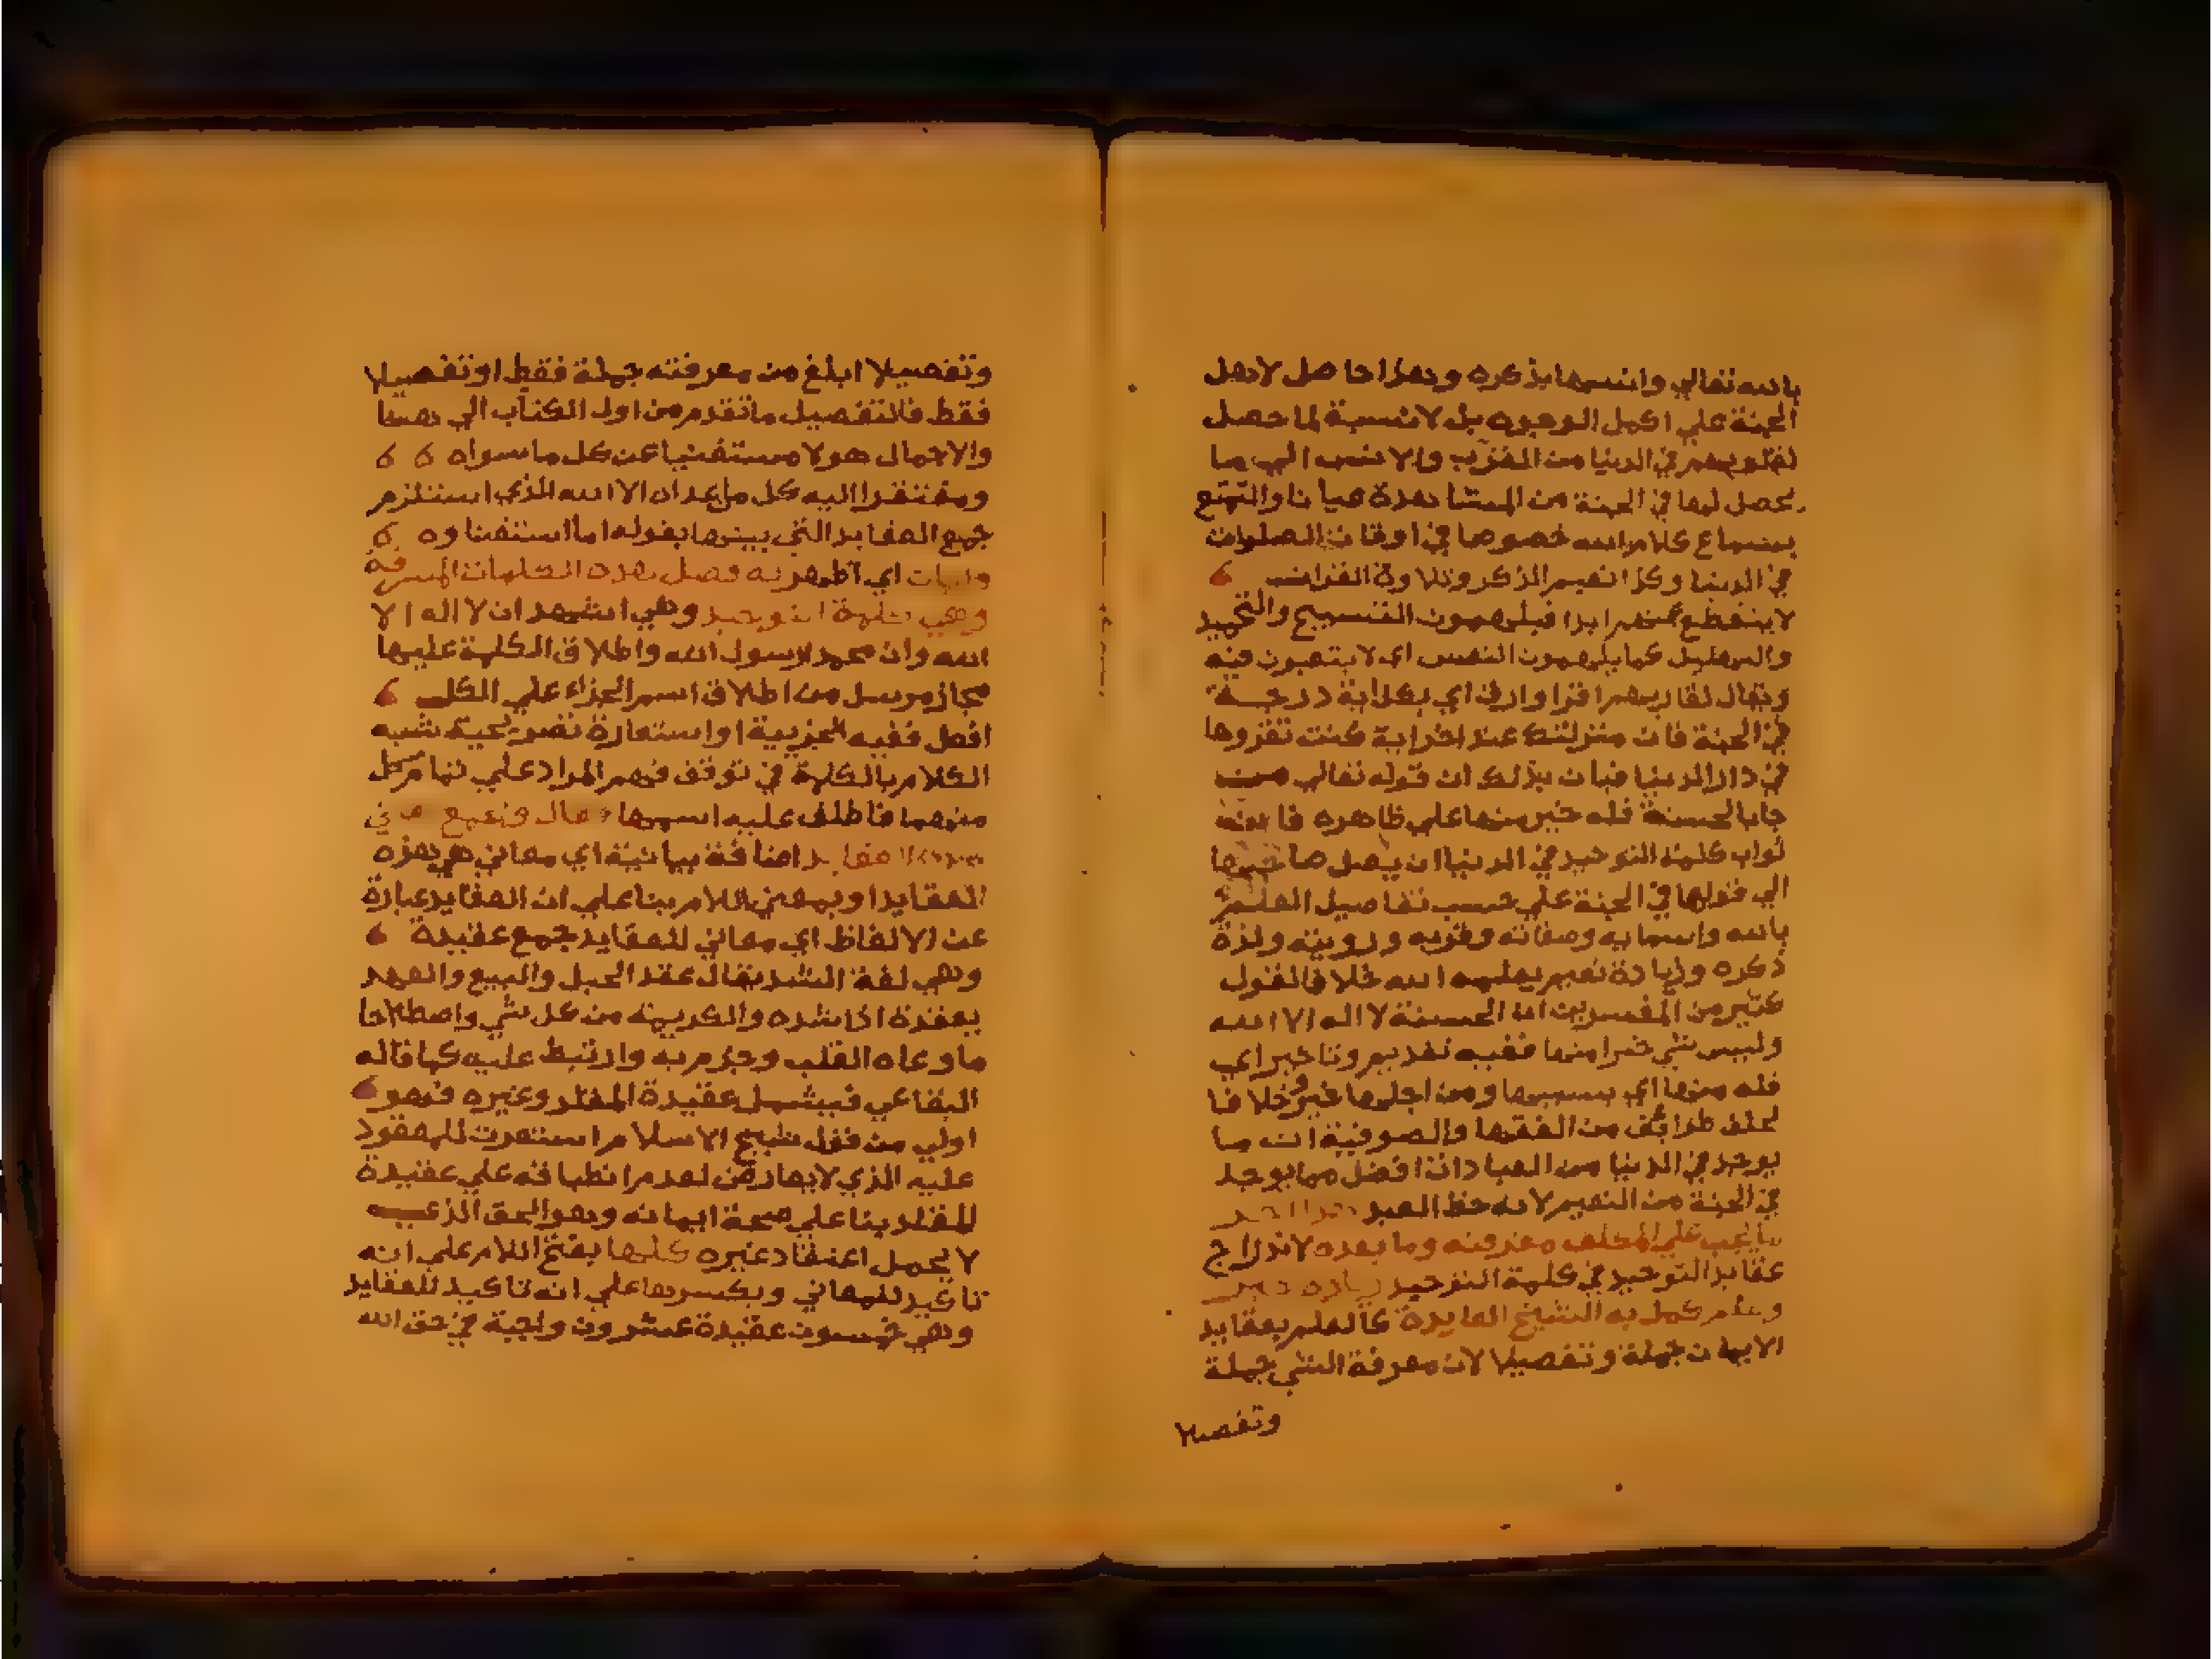 بالله تعالي وانسها بذكره وهذا حاصل لاهل
الجنة علي اكمل الوجوه بل لا نسبة لما حصل
لقلوبهم في الدنيا من القرب والانس الي ما
يحصل لها في الجنة من المشاهدة عيانا والتمتع
بسماع كلام الله خصوصا في اوقات الصلوات
في الدنيا وكذا نعيم الذكر وتلاوة القران
لا ينقطع عنهم ابدا فيلهمون التسبيح والتحميد
والتهليل كما يلهمون النفس اي لا يتعبون فيه
ويقال لقاريهم اقرا وارق اي بكل اية درجة
في الجنة فان منزلتك عند اخر اية كنت تقروها
في دار الدنيا فبان بذلك ان قوله تعالي من
جا بالحسنة فله خير منها علي ظاهره فان
ثواب كلمة التوحيد في الدنيا ان يصل صاحبها
الي قولها في الجنة علي حسب تفاصيل العلم
بالله واسمايه وصفاته وقربه ورويته ولذة
ذكره وزيادة نعيم يعلمه الله خلافا لقول
كثير من المفسرين ان الحسنة لا اله الا الله
وليس شي خيرا منها ففيه تقديم وتاخير اي
فله منها اي بسببها ومن اجلها خير وخلافا
لحلف طوائف من الفقها والصوفية ان ما
يوجد في الدنيا من العبادات افضل مما يوجد
في الجنة من النعيم لانه حظ العبد
ما يجب علي المكلف معرفته وما بعده لاندراج
عقايد التوحيد في كلمة التوحيد زيادة
وعلم كمل به الشيخ الفايدة كالعلم بعقايد
الايمان جملة وتفصيلا لان معرفة الشي جملة
وتفصيلا
وتفصيلا ابلغ من معرفته جملة فقط او تفصيلا
فقط فالتفصيل ما تقدم من اول الكتاب الي هنا
والاجمال هو لا مستغنيا عن كل ما سواه
ومفتقرا اليه كل ما عداه الا الله الذي استلزم
جمع العقايد التي بينها بقوله اما استغناوه
اي اظهر به فضل هذه الكلمات المشرفة
وهي كلمة التوحيد وهي اشهد ان لا اله الا
الله وان محمدا رسول الله واطلاق الكلمة عليها
مجاز مرسل من اطلاق اسم الجزاء علي الكل
افصل ففيه الجزيية او استعارة تصريحية شبه
الكلام بالكلمة في توقف فهم المراد علي تمام كل
منهما فاطلق عليه اسمها فقال وتجمع معاني
هذه العقايد اضافة بيانية اي معاني هي هذه
العقايد او بمعني اللام بنا علي ان العقايد عبارة
عن الالفاظ اي معاني للعقايد جمع عقيدة
وهي لغة الشد يقال عقد الحبل والبيع والعهد
يعقده اذا شده والكريهة من كل شي واصطلاحا
ما وعاه القلب وجزم به وارتبط عليه كما قاله
البقاعي فيشمل عقيدة المقلد وغيره فهو
اولي من قول شيخ الاسلام استعرت للمعقود
عليه الذي لا يعارض لعدم انطباقه علي عقيدة
المقلد بنا علي صحة ايمانه وهو الحق الذي
لا يحمل اعتقاد غيره كلها بفتح اللام علي انه
تاكيد للمعاني وبكسرها علي انه تاكيد للعقايد
وهي خمسون عقيدة عشرون واجبة في حق الله